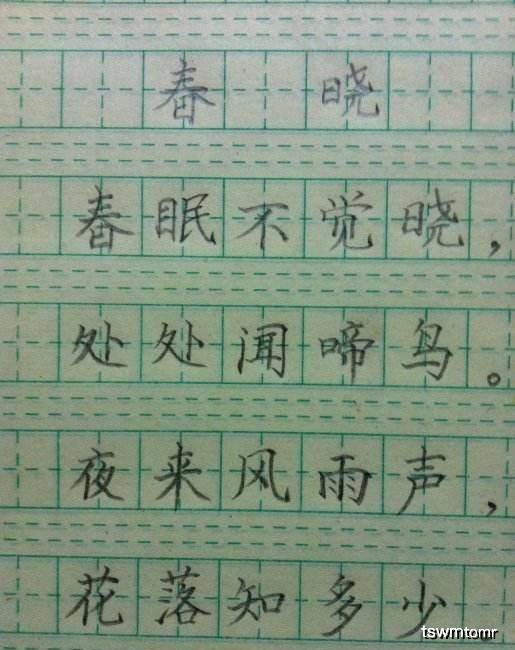 春晓
春眠不觉晓，
处处闻啼鸟。
夜来风雨声，
花落知多少。
tswmtomr